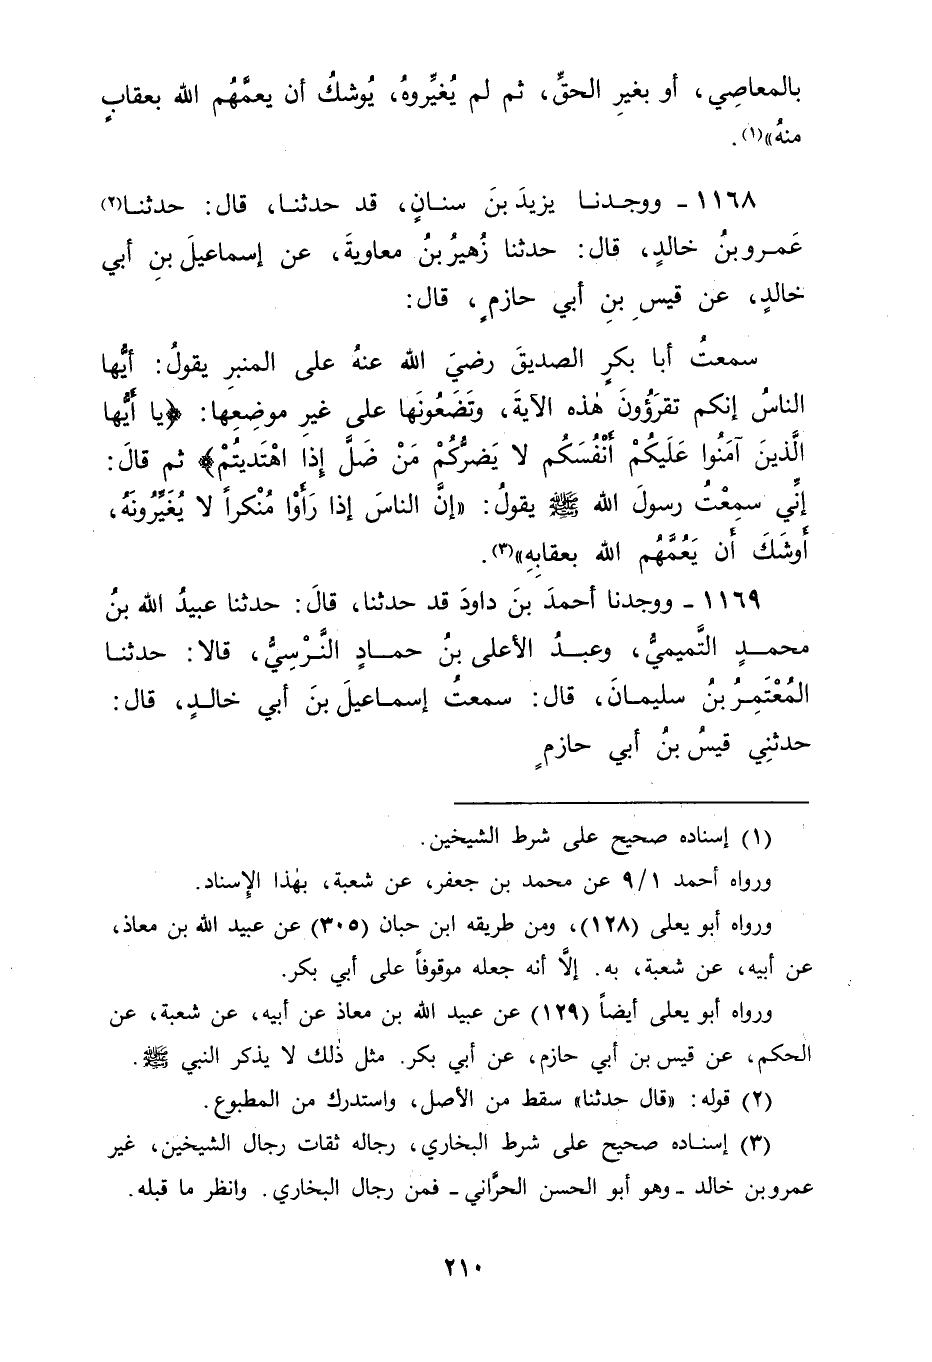 بالمعاصِي، أو بغيرِ الحقِّ، ثم لم يُغيِّروهُ، يُوشكُ أن يعمَّهُم الله بعقابٍ
منهُ»(١).
١١٦٨ ـ ووجدنا يزيدَ بنَ سنانٍ، قد حدثنا، قال: حدثنا(٢)
عَمرو بنُ خالدٍ، قال: حدثنا زُهيرُ بنُ معاويةَ، عن إسماعيلَ بنِ أبي
خالدٍ، عن قيسِ بنِ أبي حازمٍ، قال:
سمعتُ أبا بكرٍ الصديقَ رضيَ الله عنهُ على المنبرِ يقولُ: أيُّها
الناسُ إنكم تقرَؤُونَ هٰذه الآيةَ، وتَضَعُونَها على غيرِ موضِعِها: ﴿يا أَيُّها
الَّذينَ آمَنُوا عَلَيكُمْ أَنْفُسَكُم لا يَضرُّكُمْ مَنْ ضَلَّ إِذا اهْتَديتُمْ﴾ ثم قالَ:
إنِّي سمِعْتُ رسولَ الله ﷺ يقولُ: «إنَّ الناسَ إذا رَأَوْا مُنْكراً لا يُغَيِّرُونَهُ،
أَوشَكَ أَن يَعُمَّهُم الله بعقابِهِ»(٣).
١١٦٩ ـ ووجدنا أحمدَ بنَ داودَ قد حدثنا، قالَ: حدثنا عبيدُ الله بنُ
محمدٍ التَّميميُّ، وعبدُ الأعلى بنُ حمادٍ النَّرْسِيُّ، قالا: حدثنا
المُعْتَمِرُ بنُ سليمانَ، قال: سمعتُ إسماعيلَ بنَ أبي خالدٍ، قال:
حدثنِي قيسُ بنُ أبي حازمٍ
(١) إسناده صحيح على شرط الشيخين.
ورواه أحمد ٩/١ عن محمد بن جعفر، عن شعبة، بهٰذا الإِسناد.
ورواه أبو يعلى (١٢٨)، ومن طريقه ابن حبان (٣٠٥) عن عبيد الله بن معاذ،
عن أبيه، عن شعبة، به. إلَّا أنه جعله موقوفاً على أبي بكر.
ورواه أبو يعلى أيضاً (١٢٩) عن عبيد الله بن معاذ عن أبيه، عن شعبة، عن
الحكم، عن قيس بن أبي حازم، عن أبي بكر. مثل ذٰلك لا يذكر النبي ﷺ.
(٢) قوله: «قال حدثنا» سقط من الأصل، واستدرك من المطبوع.
(٣) إسناده صحيح على شرط البخاري، رجاله ثقات رجال الشيخين، غير
عمرو بن خالد ـ وهو أبو الحسن الحرَّاني ـ فمن رجال البخاري. وانظر ما قبله.
٢١٠